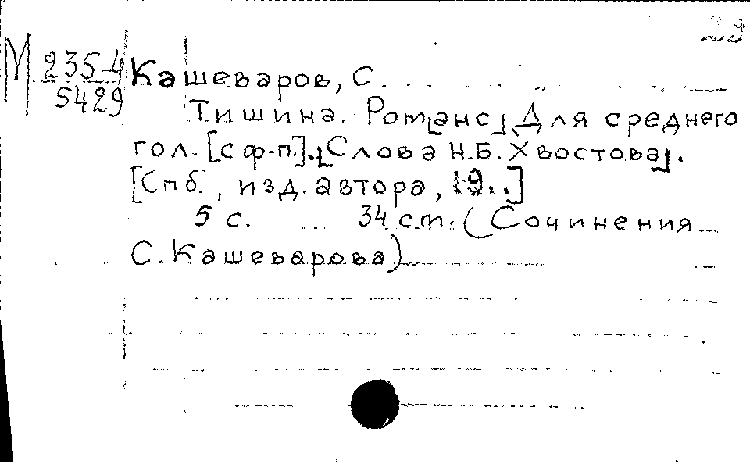 29
М 235-4
5429
Кашеваров, С.
Тишина. Ром[анс]. Для среднего
гол. [с ф-п]. [Слова Н.Б. Хвостова].
[Спб., изд. автора, 19..]
5 с. ... 34 см. (Сочинения
С. Кашеварова)